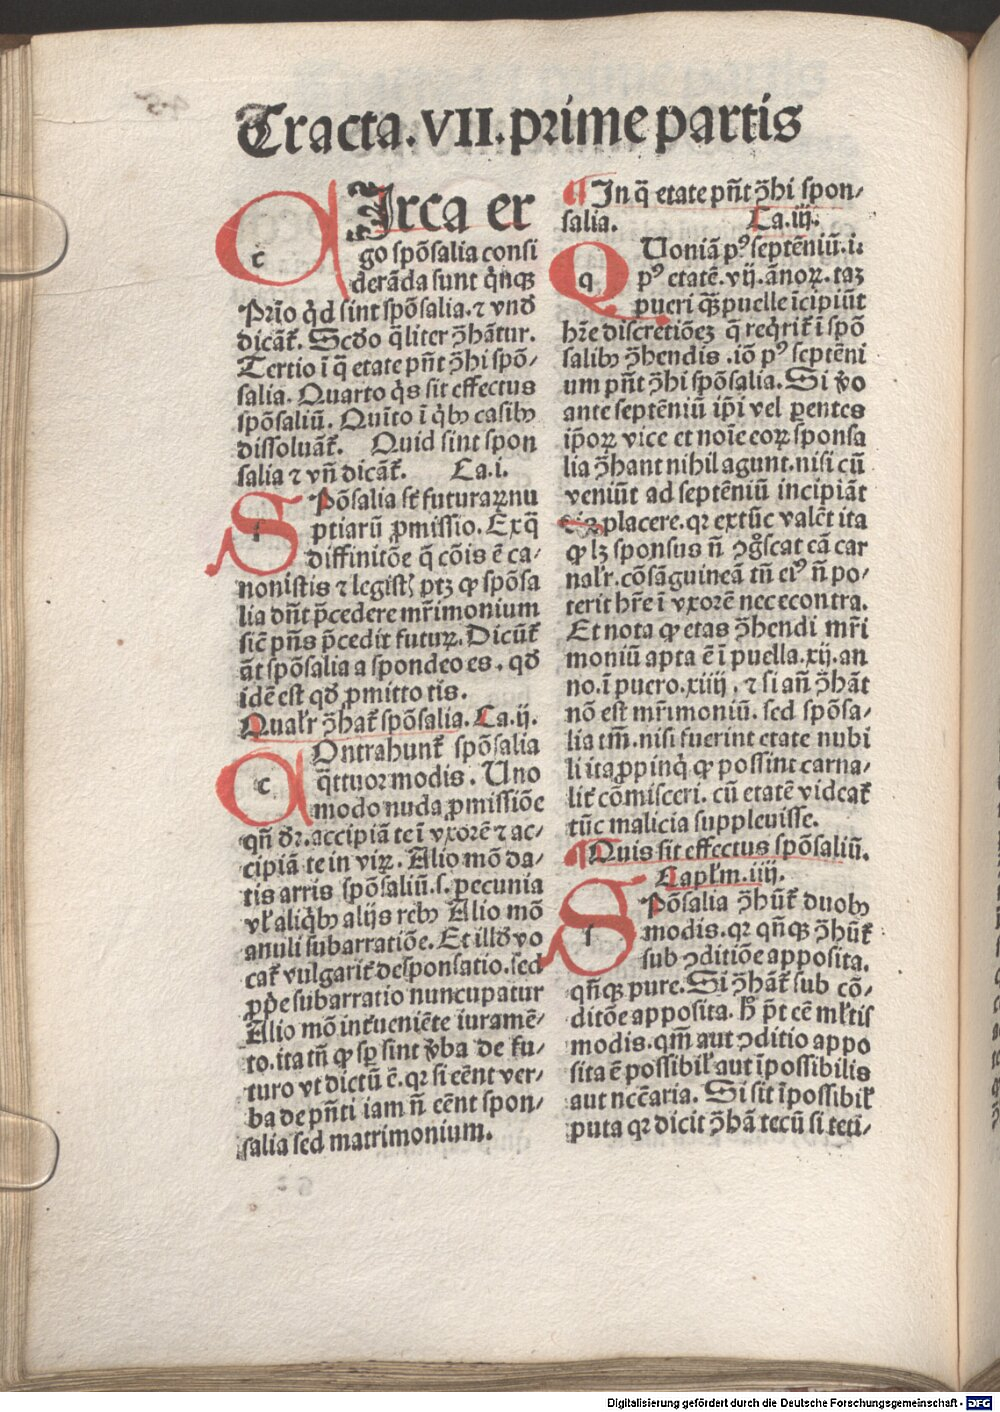 Tracta.VII.prime partis
CIrca er
go spõsalia consi
derãda sunt q̇nqꝫ
Prĩo q̇d sint spõsalia.⁊ vnð
dicãt̃. Scðo q̃liter ꝯ̃hãtur.
Tertio ĩ q̃ etate pñt ꝯ̃hi spõ⸗
salia. Quarto q̇s sit effectus
spõsaliũ. Quĩto ĩ q̇bꝰ casibꝰ
dissoluãt̃. Quid sint spon
salia ⁊ vñ dicãt̃. Ca.i.
SPõsalia st̃ futuraꝝ nu
ptiarũ ꝓmissio. Ex q̃
diffinitõe q̃ cõis ẽ ca⸗
nonistis ⁊ legist̃ ptꝫ ꝙ spõsa
lia dñt p̃cedere mr̃imonium
sic̃ pñs p̃cedit futuꝝ. Dicũt̃
ãt spõsalia a spondeo es. qð
idẽ est qð ꝓmitto tis.
Qualr̃ ꝯ̃hat̃ spõsalia. Ca.ij.
COntrahunt̃ spõsalia
q̃ttuor modis. Uno
modo nuda ꝓmissiõe
qñ ðr. accipiã te ĩ vxorẽ ⁊ ac⸗
cipiã te in viꝝ. Alio mõ da⸗
tis arris spõsaliũ.s. pecunia
vl̃ aliq̇bꝰ alijs rebꝰ Alio mõ
anuli subarratiõe. Et illð vo
cat̃ vulgarit̃ desponsatio. sed
ꝓp̃e subarratio nuncupatur
Alio mõ int̃ueniẽte iuramẽ⸗
to. ita tñ ꝙ sp̃ sint ṽba de fu⸗
turo vt dictũ ẽ. qꝛ si eẽnt ver⸗
ba de pñti iam ñ eẽnt spon⸗
salia sed matrimonium.
¶ In q̃ etate pñt ꝯ̃hi spon⸗
salia. Ca.iij.
QUoniã pꝰ septẽniũ.i.
pꝰ etatẽ.vij.ãnoꝝ.taꝫ
pueri qꝫ̃ puelle ĩcipiũt
hr̃e discretiõeꝫ q̃ req̇rit̃ ĩ spõ
salibꝰ ꝯ̃hendis .iõ pꝰ septẽni
um pñt ꝯ̃hi spõsalia. Si ṽo
ante septẽniũ ip̃i vel ꝑentes
ip̃oꝝ vice et noĩe eoꝝ sponsa
lia ꝯ̃hant nihil agunt. nisi cũ
veniũt ad septẽniũ incipiãt
eis placere. qꝛ ex tũc valẽt ita
ꝙ lꝫ sponsus ñ ꝯg̊scat eã car
nalr̃. cõsãguineã tñ eiꝰ ñ po⸗
terit hr̃e ĩ vxorẽ nec econtra.
Et nota ꝙ etas ꝯ̃hendi mr̃i
moniũ apta ẽ ĩ puella.xij.an
no.ĩ puero.xiiij. ⁊ si añ ꝯ̃hãt
nõ est mr̃imoniũ. sed spõsa⸗
lia tm̃. nisi fuerint etate nubi
li ita ꝓpinq̇ ꝙ possint carna⸗
lit̃ cõmisceri. cũ etatẽ videat̃
tũc malicia suppleuisse.
¶ Quis sit effectus spõsaliũ.
Capl̃m.iiij.
SPõsalia ꝯ̃hũt̃ duobꝰ
modis. qꝛ qñqꝫ ꝯ̃hũt̃
sub ꝯditiõe apposita.
qñqꝫ pure. Si ꝯ̃hãt̃ sub cõ⸗
ditõe apposita. h̃ p̃t eẽ ml̃tis
modis. qm̃ aut ꝯditio appo
sita ẽ possibil̃ aut ĩpossibilis
aut nccẽaria. Si sit ĩpossibil̃
puta qꝛ dicit ꝯ̃hã tecũ si teti⸗
Digitalisierung gefördert durch die Deutsche Forschungsgemeinschaft - DFG